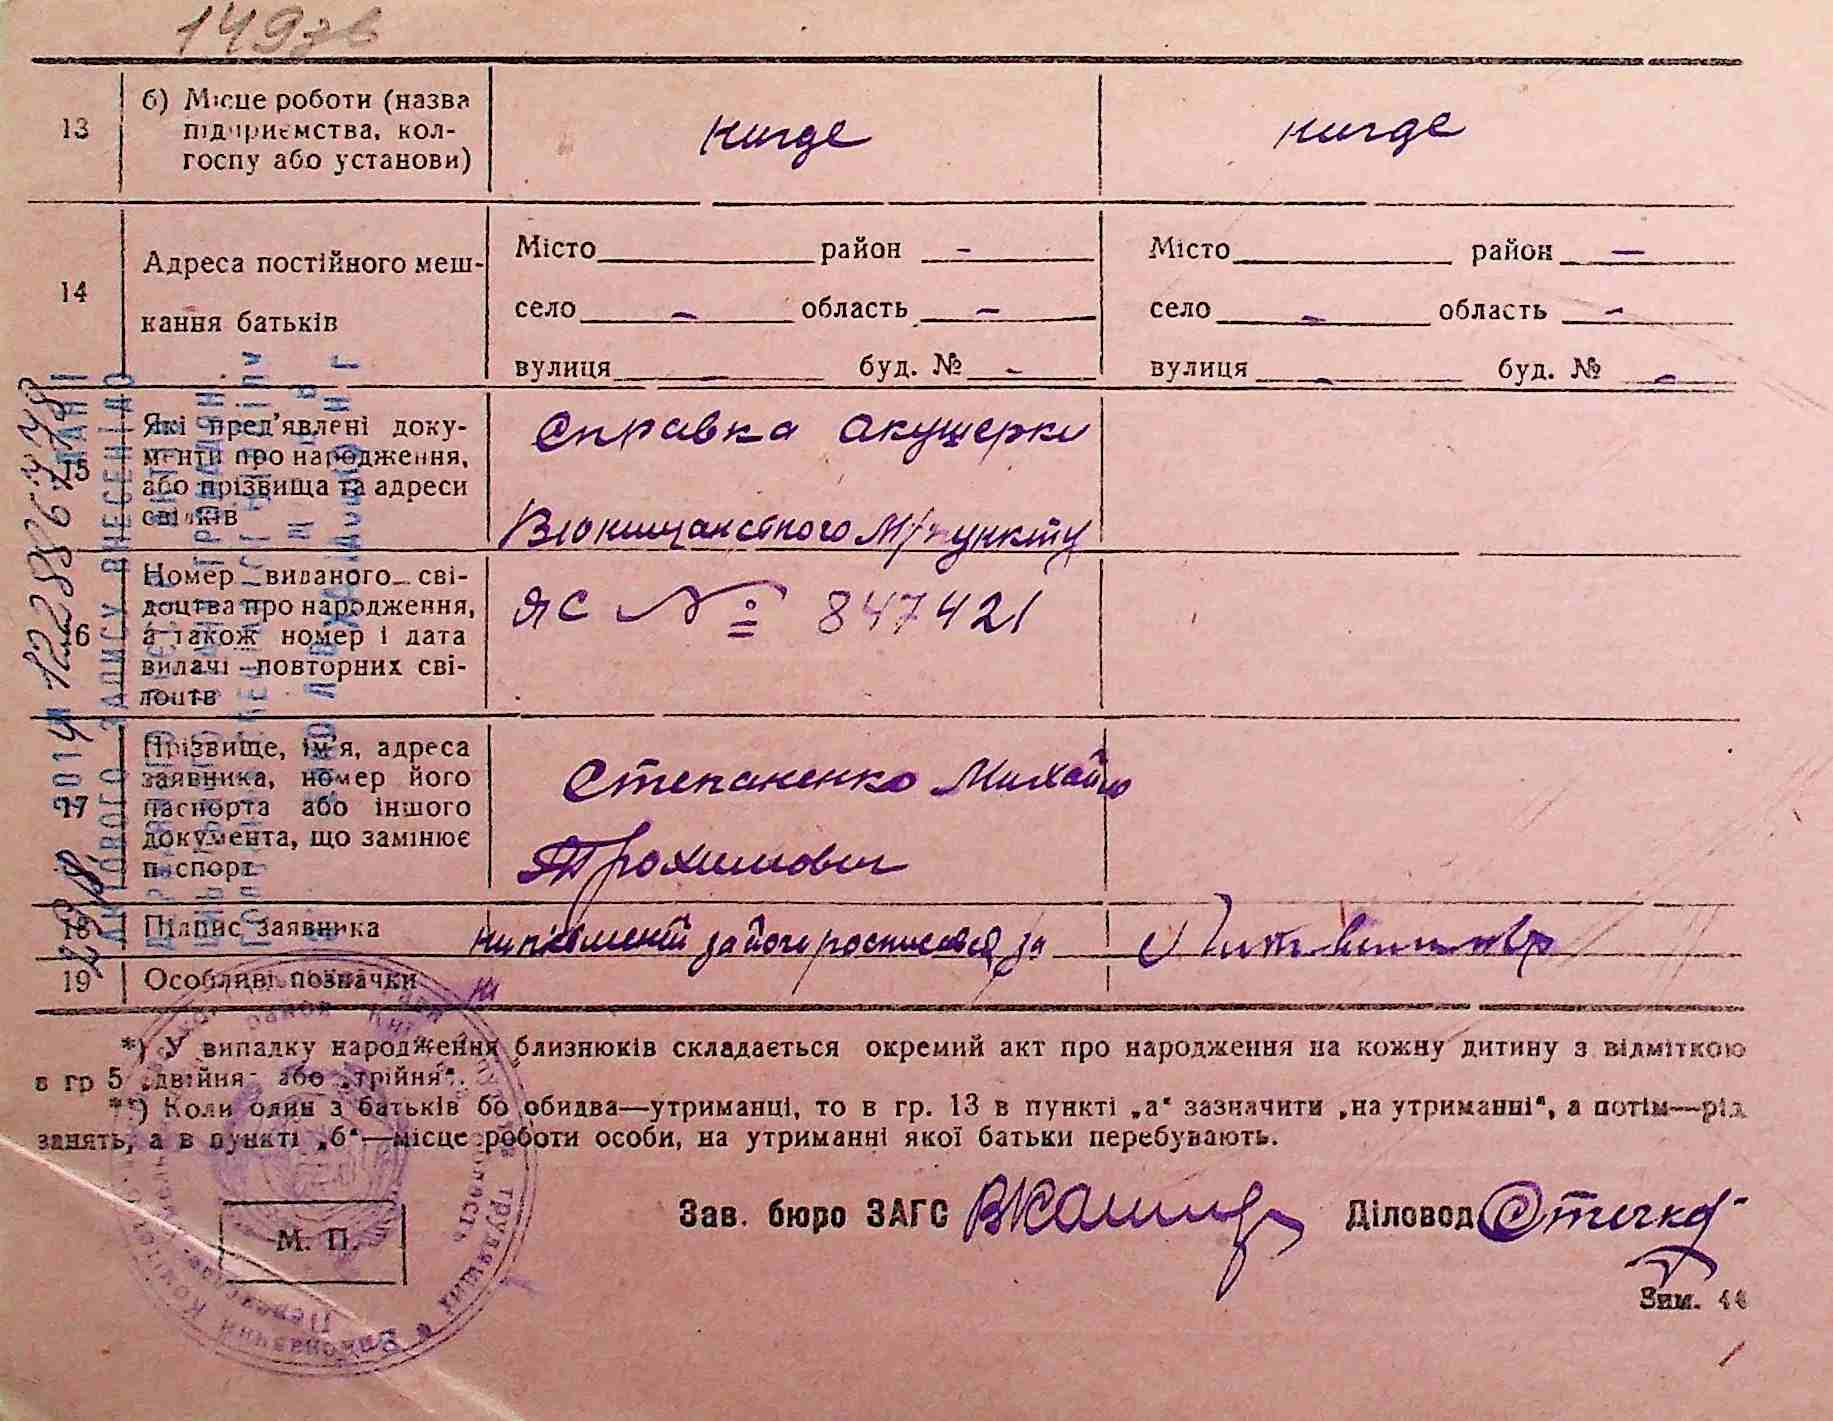 149зв
13
б) Місце роботи (назва
підприємства, кол-
госпу або установи)
нигде
нигде
14
Адреса постійного меш-
кання батьків
Місто район -
село - область -
вулиця - буд. № -
Місто район -
село - область -
вулиця - буд. № -
15
Які пред'явлені доку-
менти про народження,
або прізвища та адреси
свідків
Справка акушерки
пункту
16
Номер виданого сві-
доцтва про народження,
а також номер і дата
видачі повторних сві-
доцтв
ЯС № 847421
17
Прізвище, ім'я, адреса
заявника, номер його
паспорта або іншого
документа, що замінює
паспорт
Степаненко Михайло
Трохимович
18
Підпис заявника
за його росписався за
19
Особливі позначки
*) У випадку народження близнюків складається окремий акт про народження на кожну дитину з відміткою
в гр 5 „двійня“ або „трійня“.
**) Коли один з батьків бо обидва—утриманці, то в гр. 13 в пункті „а“ зазначити „на утриманні“, а потім—рід
занять, а в пункті „б“—місце роботи особи, на утриманні якої батьки перебувають.
Зав. бюро ЗАГС
Діловод
М. П.
Зим.